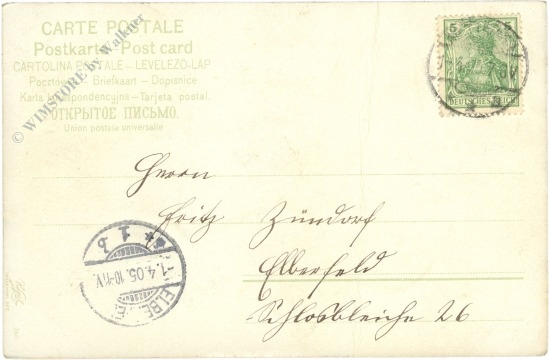 CARTE POSTALE
Postkarte - Post card
CARTOLINA POSTALE - LEVELEZŐ-LAP
Briefkaart - Dopisnice
Karta korespondencyjna - Tarjeta postal.
ОТКРЫТОЕ ПИСЬМО.
Union postale universelle
© WIMSTORE by Walkner
5 5
DEUTSCHES REICH
Herrn
Fritz Zündorf
Elberfeld
Schlosbleiche 26
-1.4.05. 10-11V.
ELBE